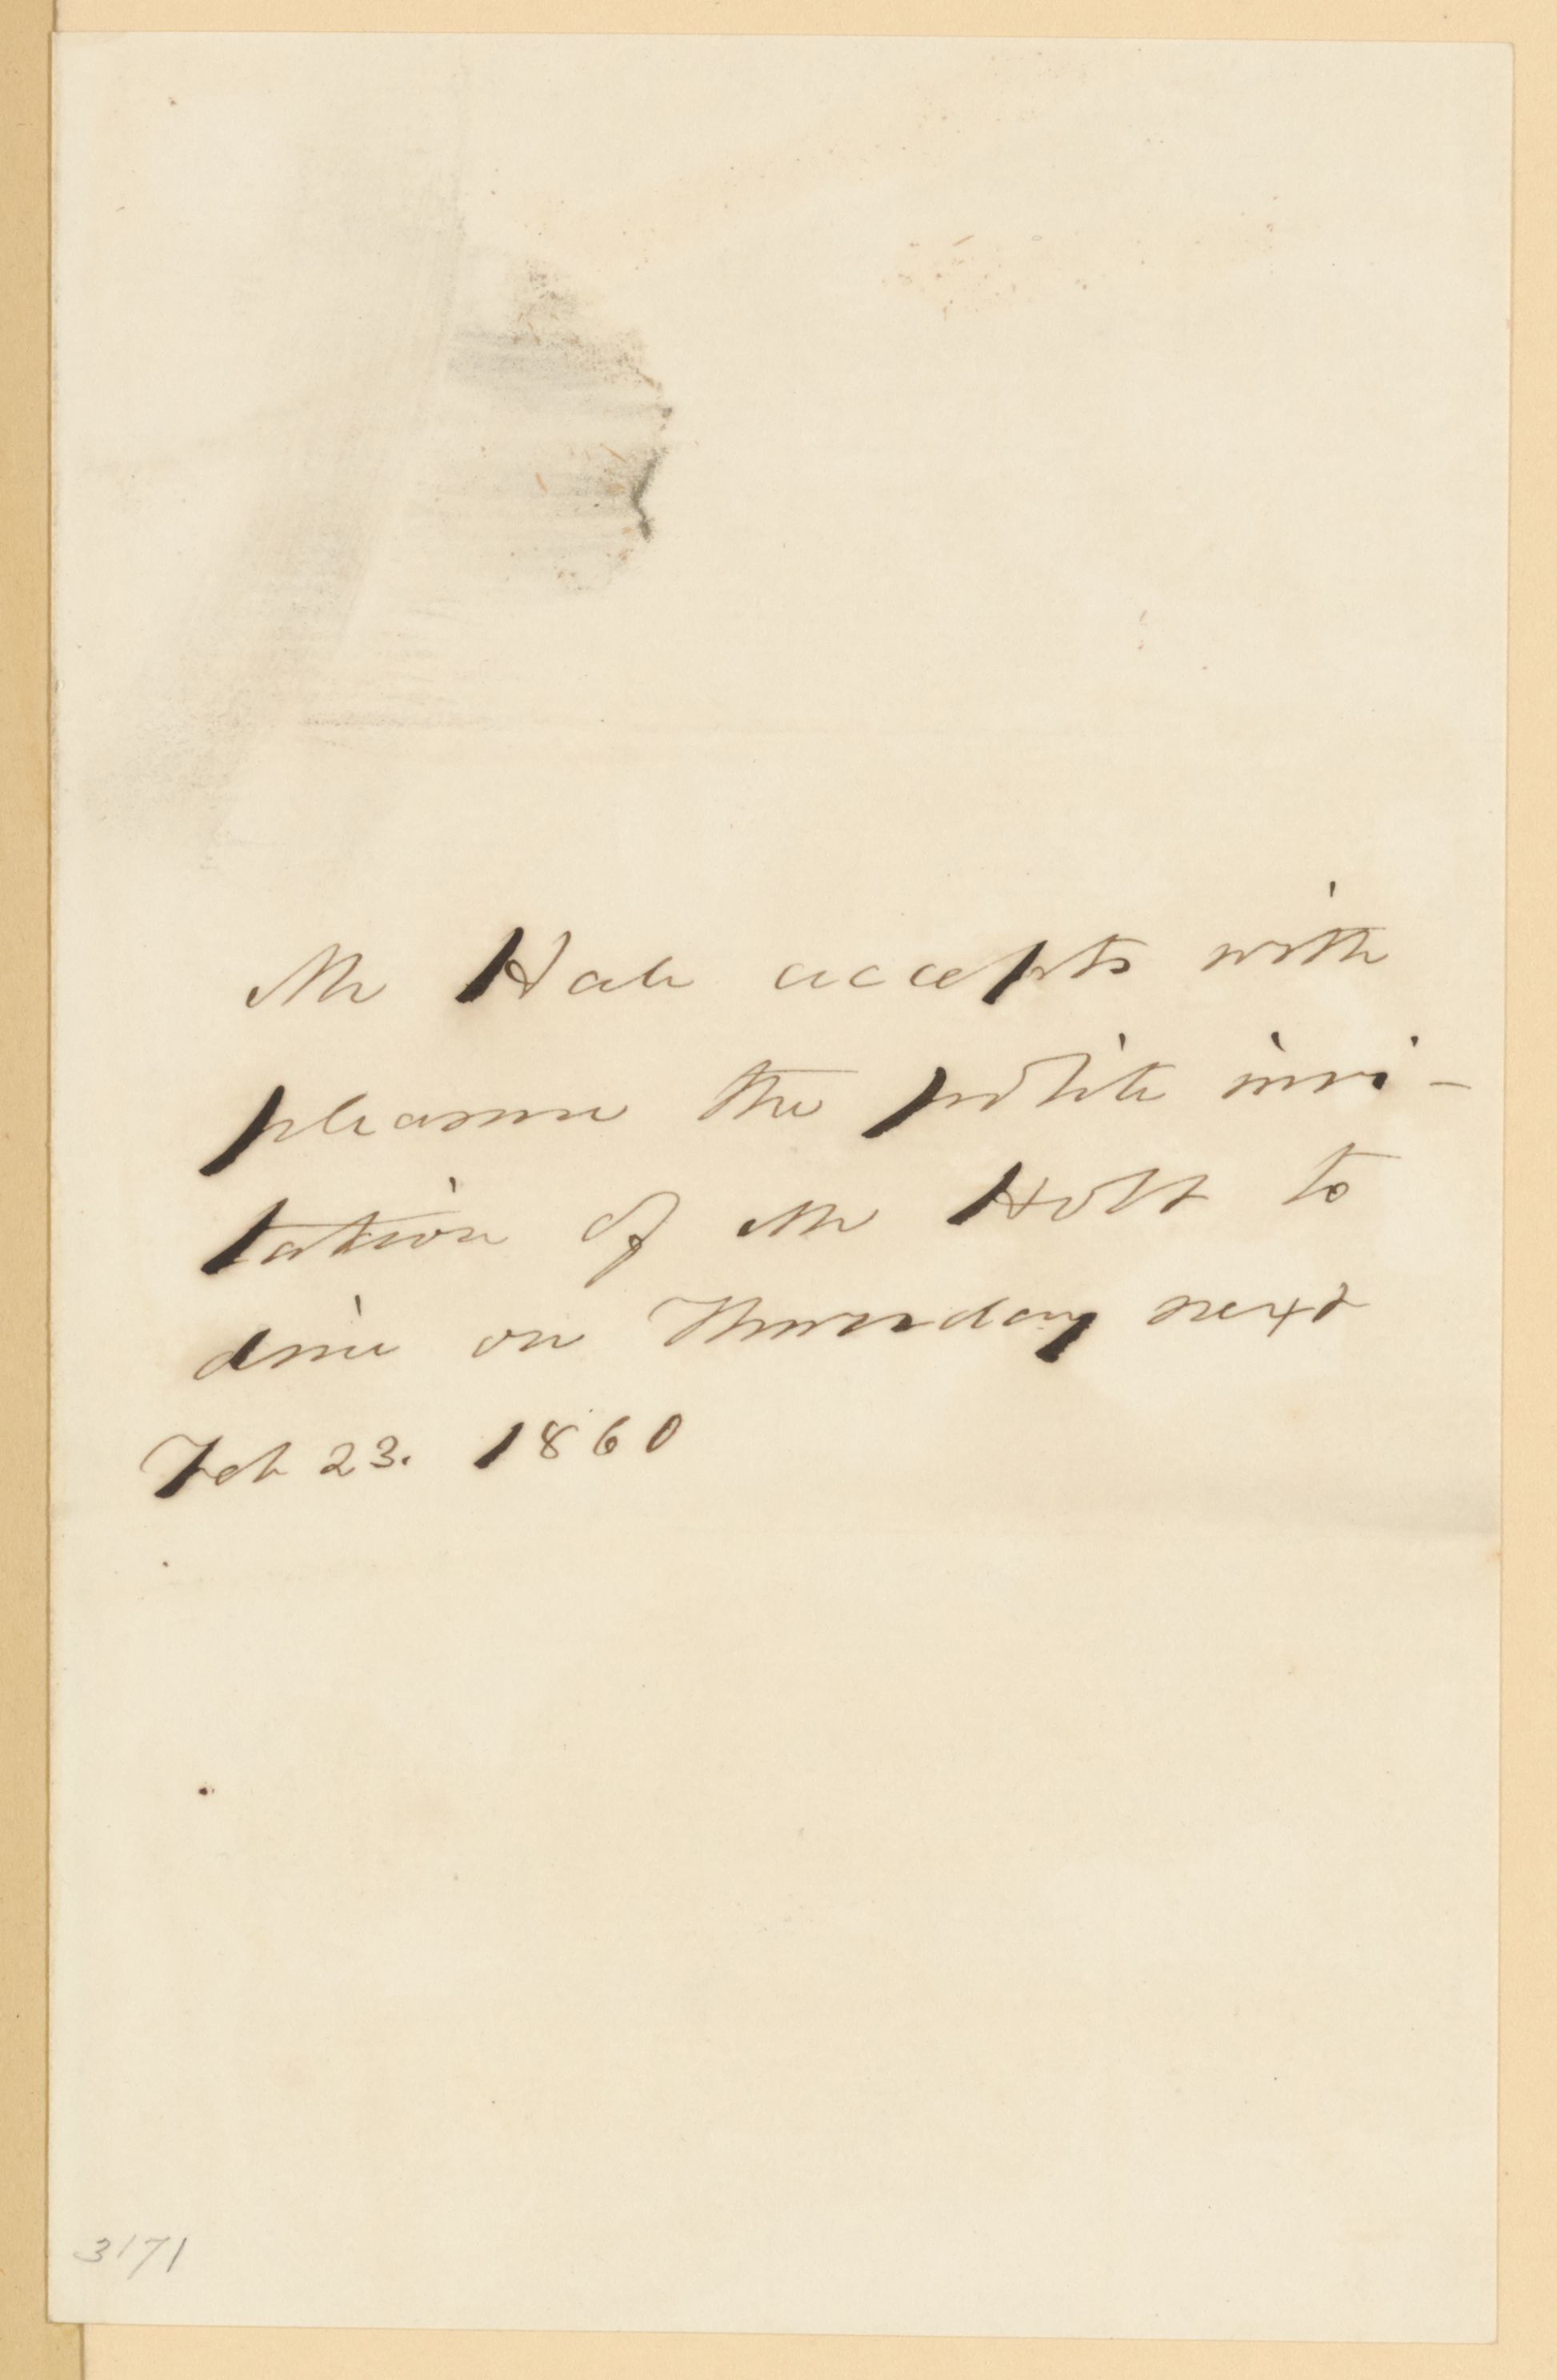 Mr Hale accepts with
pleasure the polite invi-
tation of Mr Holt to
dine on Thursday next
Feb 23. 1860
3171